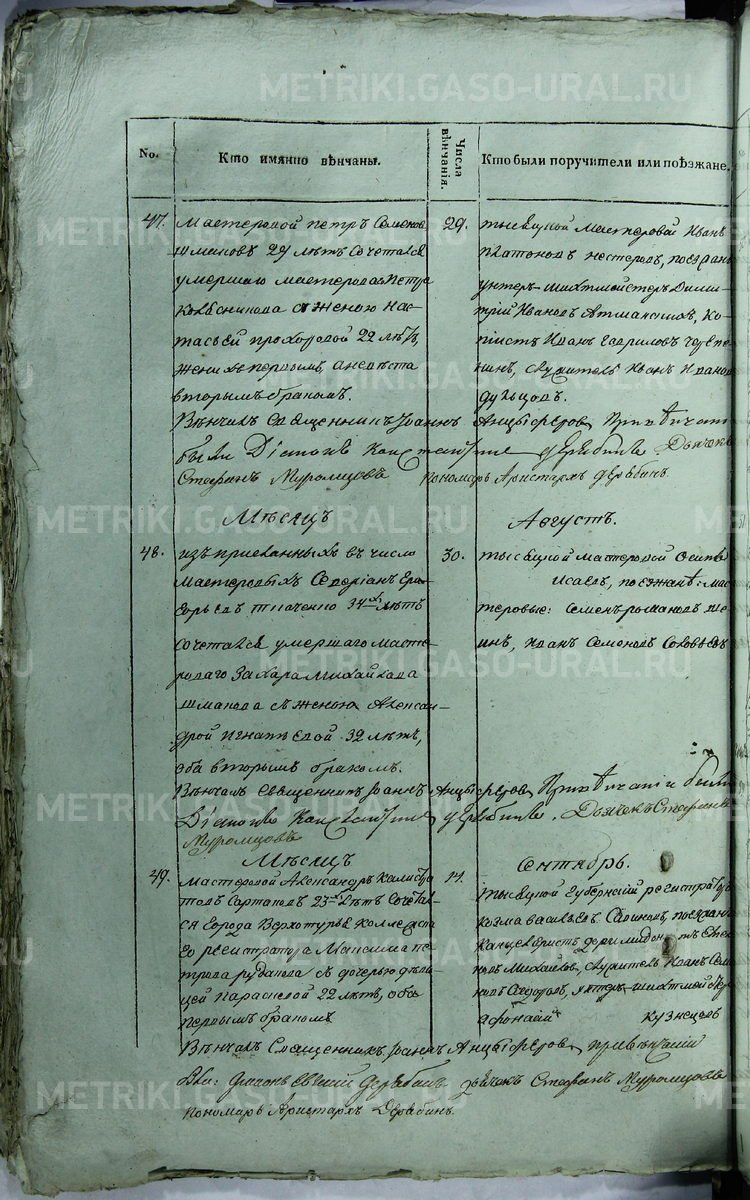 METRIKI.GASO-URAL.RU
No.
Кто имянно вѣнчаны.
Числа вѣнчанія.
Кто были поручители или поѣзжане.
47.
мастеровой петръ Семенов
шмаковъ 29 лѣтъ сочетался
умершаго мастероваго петра
с женою нас-
тасьей прохоровой 22 лѣтъ,
женихъ первымъ, а невѣста
вторымъ бракомъ.
29.
тысяцкой мастеровой Иванъ
платоновъ нестеровъ, поезжан
унтеръ-шихтмейстеръ Дими-
трій Ивановъ Ко-
піистъ Иванъ Гавриловъ
служитель Иванъ Иванов
Вѣнчалъ Священникъ Іоаннъ Анцыферовъ При вѣнчаніи
были Діаконъ Константинъ Дерябинъ Дьячекъ
Стефанъ Муромцовъ Пономарь Аристархъ Дерябинъ
Мѣсяцъ Августъ.
48.
изъ присланныхъ в число
мастеровыхъ
34х лѣтъ
сочетался умершаго масте-
роваго Захара михайлова
шмакова с женою Алексан-
дрой игнатьевой 32 лѣтъ,
оба вторымъ бракомъ.
30.
тысяцкой мастеровой
Исаевъ, поезжанѣ: мас-
теровые: Семенъ романовъ
Иванъ Семеновъ
Вѣнчалъ священникъ Іоаннъ Анцыферовъ При вѣнчаніи были
Діаконъ Константинъ Дерябинъ. Дьячекъ Стефанъ
Муромцовъ
Мѣсяцъ Сентябрь.
49.
Мастеровой Александръ калистра
товъ 23 лѣтъ сочетал-
ся города Верхотурья коллежска
го регистратора Максима пе-
трова с дочерью дѣви-
цей параскевой 22 лѣтъ, оба
первымъ бракомъ
14.
тысяцкой губернскій регистраторъ
козма васильевъ поезжан
канцеляристъ
михайловъ, служитель Иванъ Семе
новъ унтеръ-шихтмейстеръ
афонасій кузнецовъ
Вѣнчалъ Священникъ Іоаннъ Анцыферовъ при вѣнчаніи
были: Диаконъ Дерябинъ дьячекъ Стефанъ Муромцовъ
пономарь Аристархъ Дерябинъ.